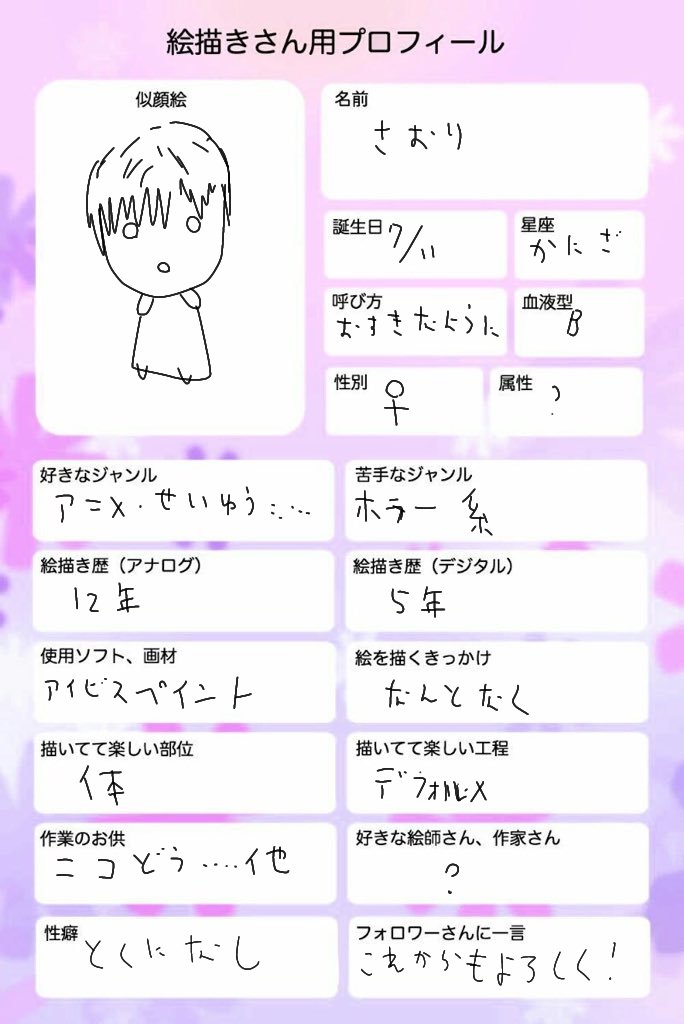 絵描きさん用プロフィール
似顔絵
名前
さおり
誕生日 7/11
星座
かにざ
呼び方
おすきなように
血液型
B
性別
♀
属性
?
好きなジャンル
アニメ・せいゆう……
苦手なジャンル
ホラー系
絵描き歴（アナログ）
12年
絵描き歴（デジタル）
5年
使用ソフト、画材
アイビスペイント
絵を描くきっかけ
なんとなく
描いてて楽しい部位
体
描いてて楽しい工程
デフォルメ
作業のお供
ニコどう….他
好きな絵師さん、作家さん
?
性癖
とくになし
フォロワーさんに一言
これからもよろしく!